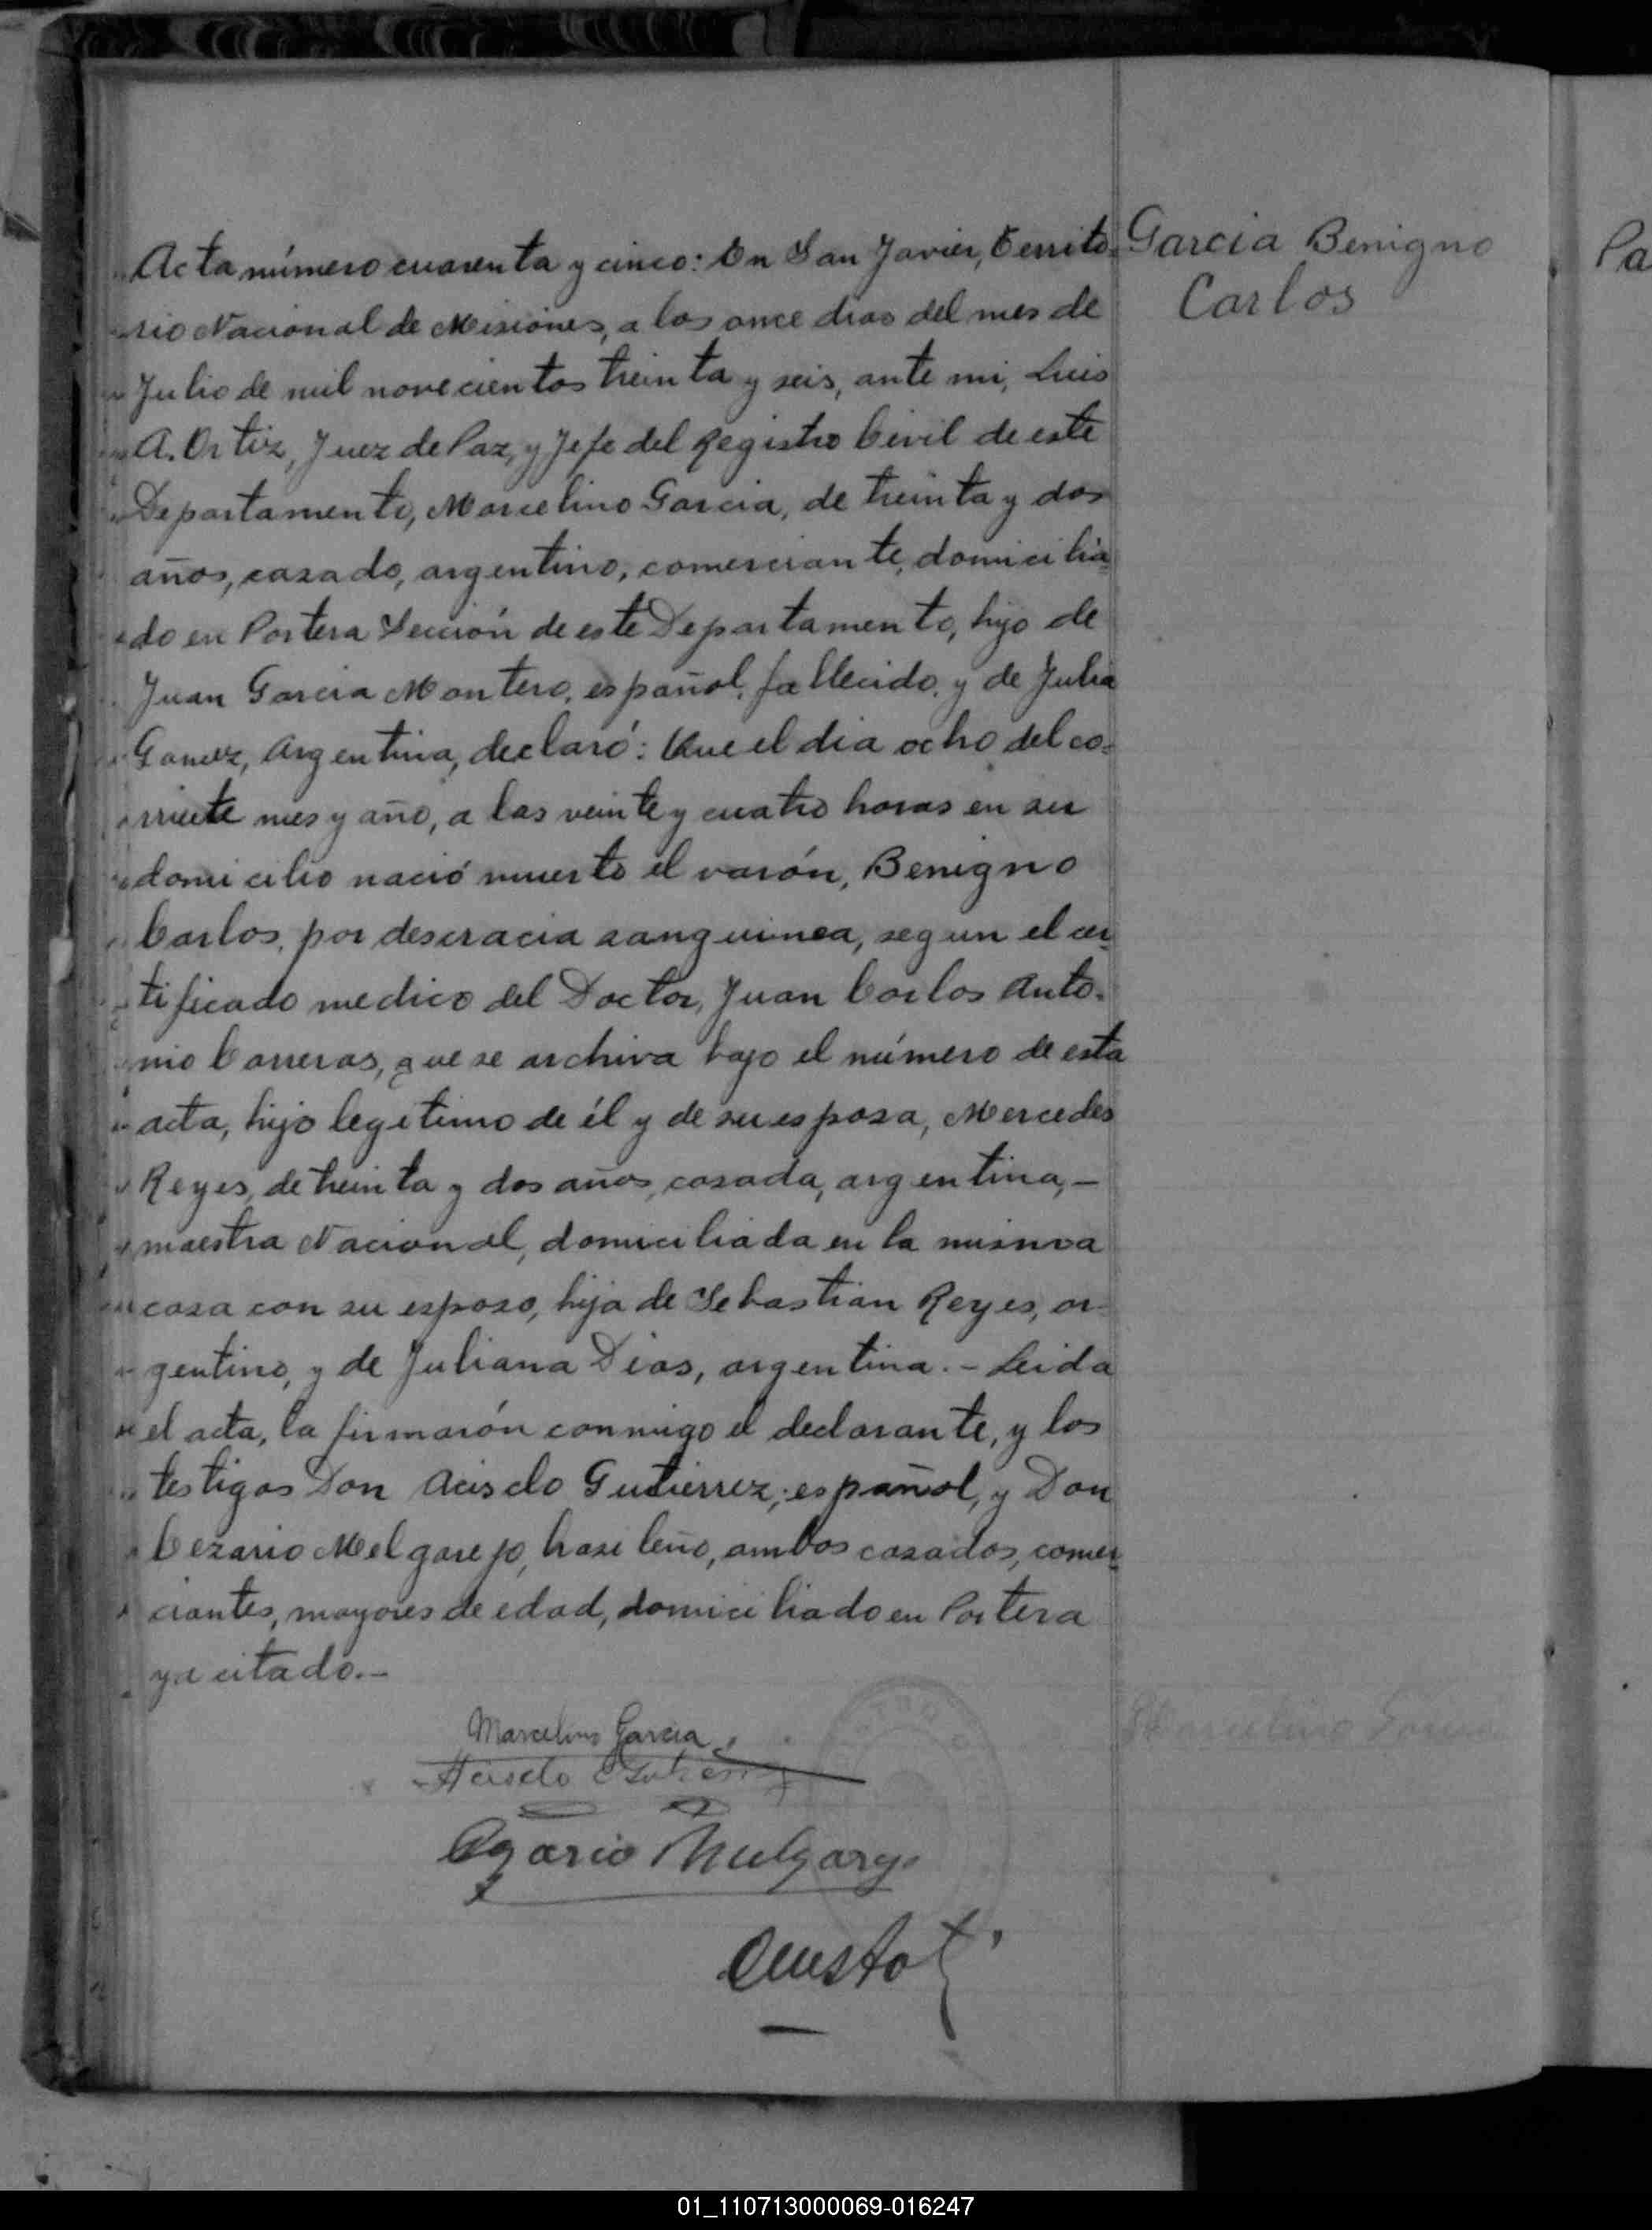 Garcia Benigno
Carlos
Pa
Acta número cuarenta y cinco: En San Javier, Territo-
rio Nacional de Misiones, a los once dias del mes de
Julio de mil novecientos treinta y seis, ante mi, Luis
A. Ortiz, Juez de Paz, y Jefe del Registro Civil de este
Departamento, Marcelino Garcia, de treinta y dos
años, casado, argentino, comerciante, domicilia
do en Portera Sección de este Departamento, hijo de
Juan Garcia Montero, español, fallecido, y de Julia
Gomez, Argentina, declaró: Que el dia ocho del co-
rriente mes y año, a las veinte y cuatro horas en su
domicilio nació muerto el varón, Benigno
Carlos, por descracia sanguinea, segun el cer
tificado medico del Doctor, Juan Carlos Anto-
nio Carreras, que se archiva bajo el número de esta
acta, hijo legitimo de él y de su esposa, Mercedes
Reyes, de treinta y dos años, casada, argentina, -
maestra Nacional, domiciliada en la misma
casa con su esposo, hija de Sebastian Reyes, ar-
gentino, y de Juliana Dias, argentina. - Leida
el acta, la firmarón conmigo el declarante, y los
testigos Don Acisclo Gutierrez, español, y Don
Cezario Melgarejo, brasileño, ambos casados, comer
ciantes, mayores de edad, domiciliado en Portera
ya citado. -
Marcelino Garcia
Acisclo Gutierrez
Cezario Melgarejo
01_110713000069-016247